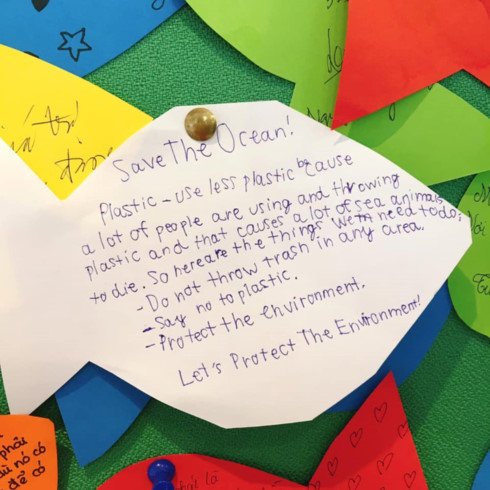 Save The Ocean!
Plastic - use less plastic because
a lot of people are using and throwing
plastic and that causes a lot of sea animals
to die. So here are the things we need to do:
- Do not throw trash in any area.
- Say no to plastic.
- Protect the environment.
Let's Protect The Environment!
phải
nó có
để có